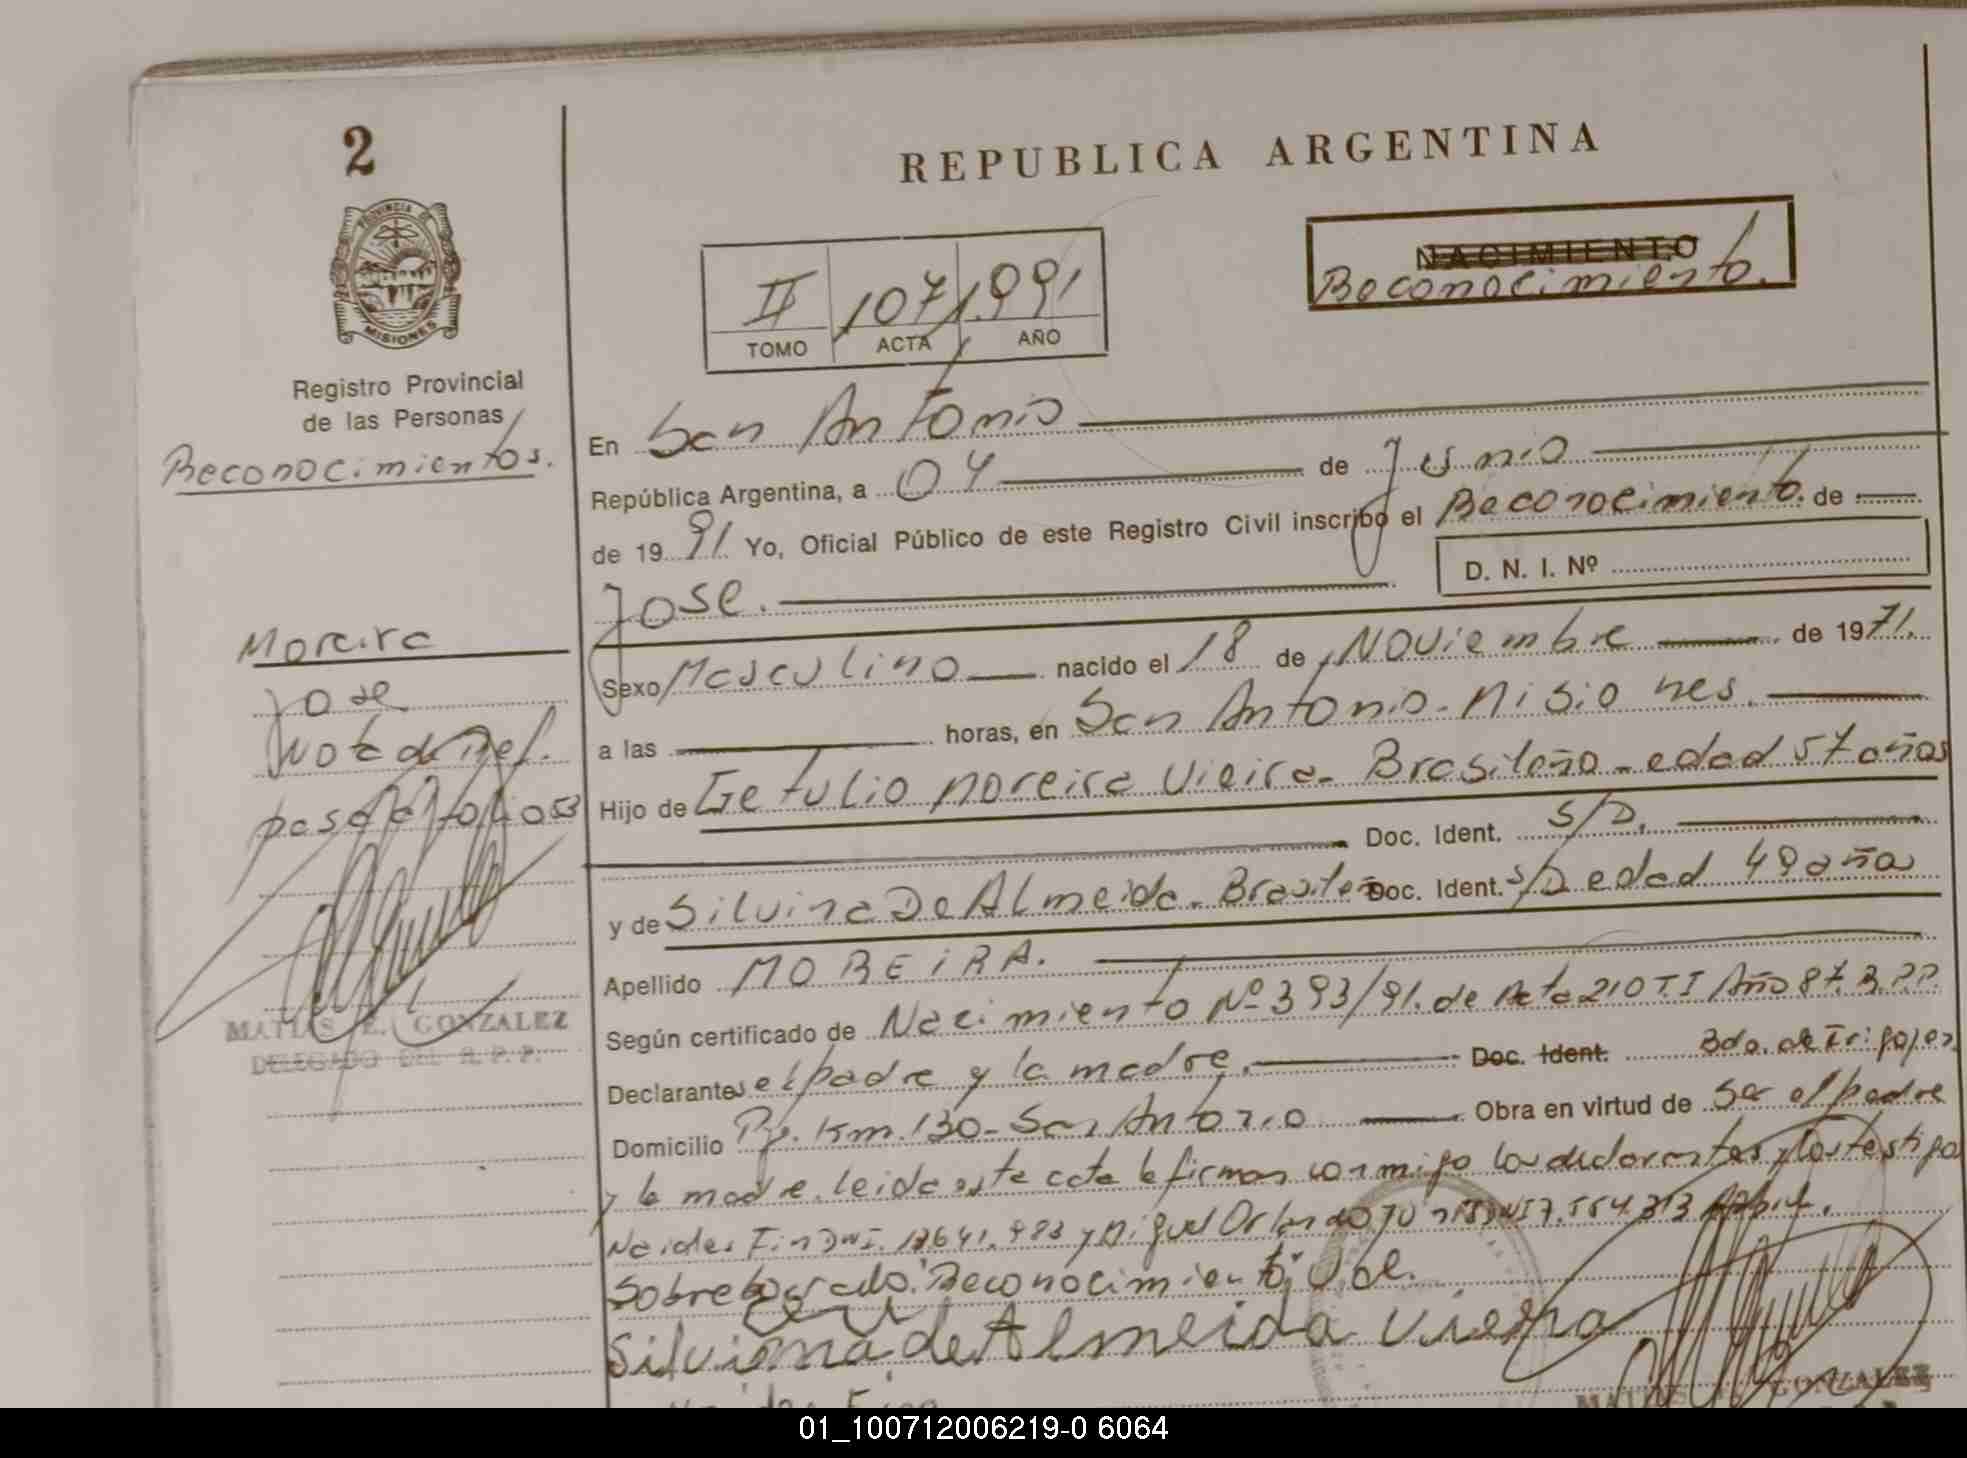 2
PROVINCIA DE
MISIONES
Registro Provincial
de las Personas
Reconocimientos.
Moreira
Jose
Nota de Ref.
pasa al folio 053
MATIAS E. GONZALEZ
DELEGADO DEL R. P. P.
REPUBLICA ARGENTINA
NACIMIENTO
Reconocimiento.
II 107 1.991
TOMO ACTA AÑO
En San Antonio
República Argentina, a 04 de Junio
de 19 91. Yo, Oficial Público de este Registro Civil inscribo el Reconocimiento. de
Jose. D. N. I. Nº
Sexo Masculino nacido el 18 de Noviembre de 1971.
a las horas, en San Antonio - Misiones.
Hijo de Getulio Moreira Vieira - Brasileño - edad 57 años
Doc. Ident. S/D.
y de Silvina De Almeida - Brasileña Doc. Ident. S/D edad 49 años
Apellido MOREIRA.
Según certificado de Nacimiento Nº 393/91. de Acta 210 T. I Año 87.
Declarantes el padre y la madre. Doc. Ident. Bdo. de Irigoyen
Domicilio Km. 130 - San Antonio Obra en virtud de Ser el padre
y la madre. leida esta acta la firman conmigo los declarantes y los testigos
y Miguel Orlando
Sobreborrado: "Reconocimiento", vale.
Silvina de Almeida viera
MATIAS GONZALEZ
01_100712006219-0 6064